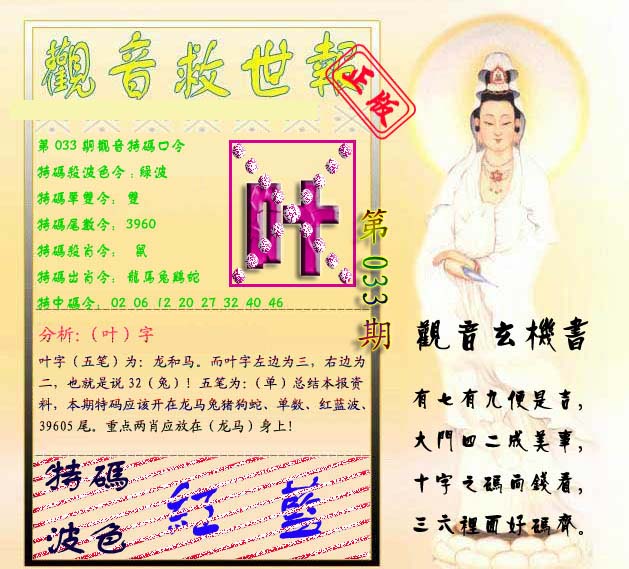 觀音救世報
正版
第033期觀音特碼口令
特碼殺波色令:綠波
特碼單雙令: 雙
特碼尾數令: 3960
特碼殺肖令: 鼠
特碼出肖令: 龍馬兔鷄蛇
特中碼令: 02 06 12 20 27 32 40 46
叶
第033期
分析:(叶)字
叶字(五笔)为:龙和马。而叶字左边为三,右边为
二,也就是说32(兔)!五笔为:(单)总结本报资
料,本期特码应该开在龙马兔猪狗蛇、单数、红蓝波、
39605尾。重点两肖应放在(龙马)身上!
特碼
波色
紅 藍
觀音玄機書
有七有九便是吉,
大門四二成美事,
十字之碼而錢看,
三六裡面好碼齊。